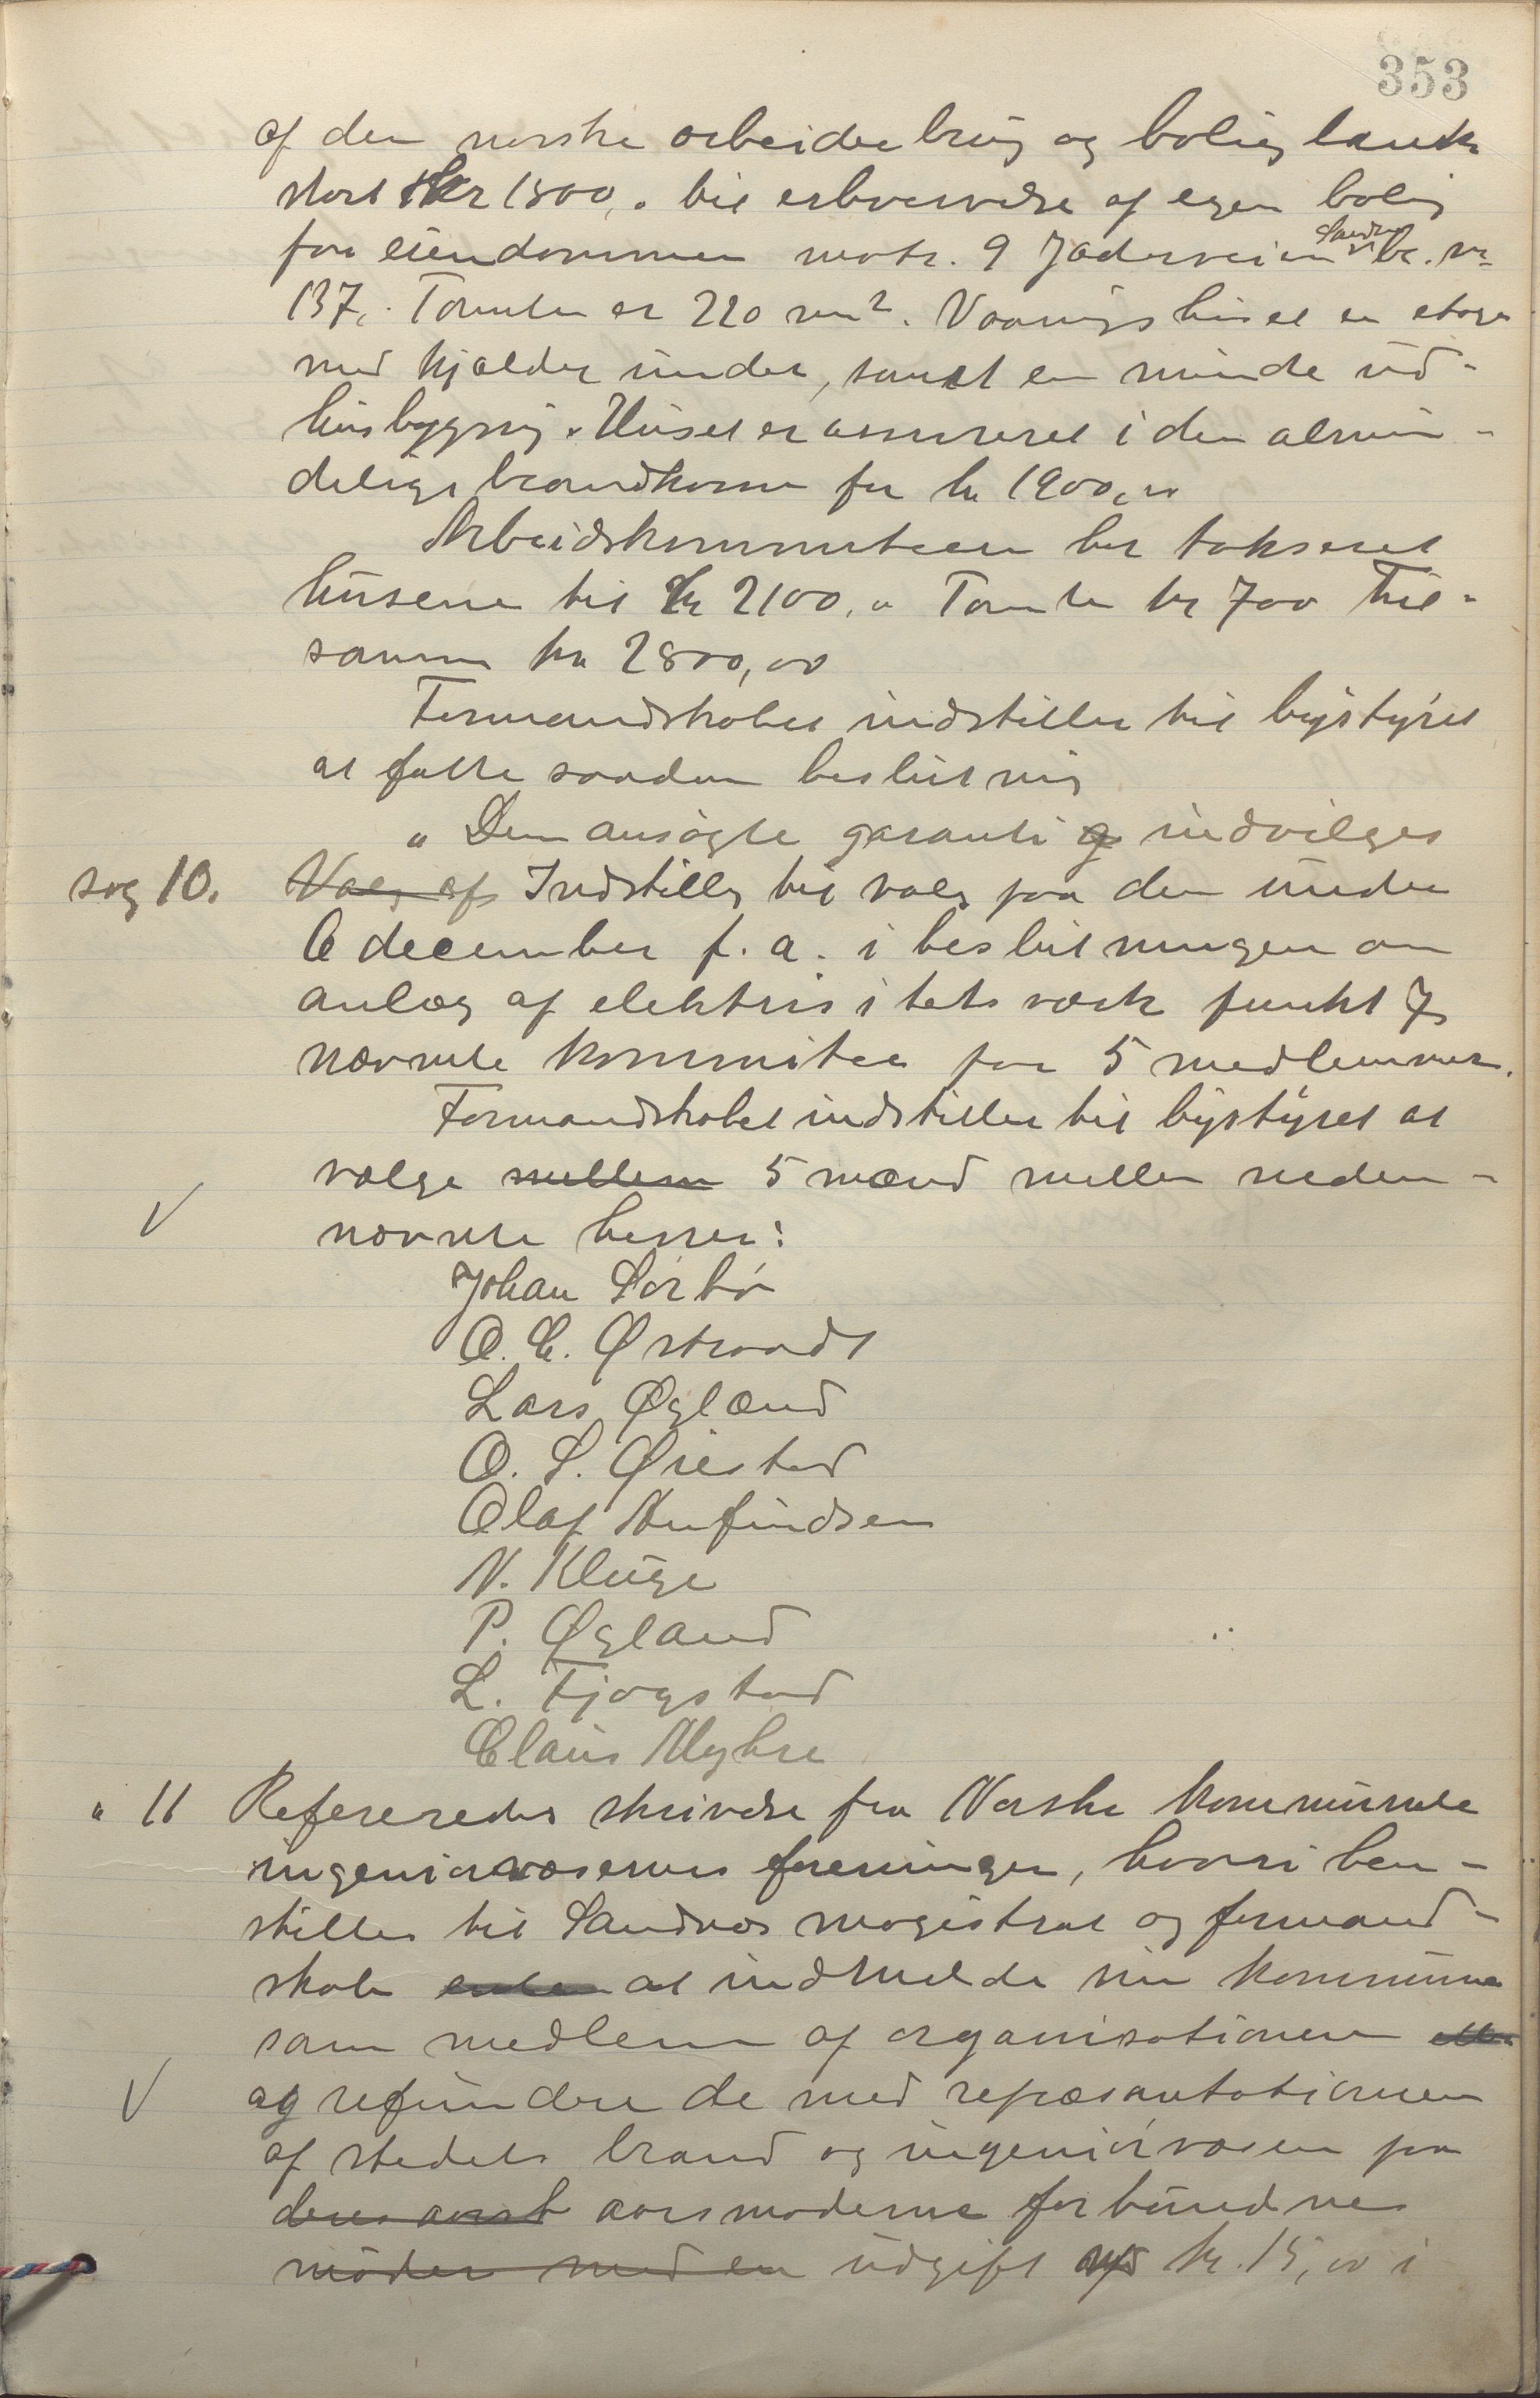 353
af den norske arbeiderbrug og boligbank
stort kr 1800,. til erhvervelse af egen bolig
paa eiendommen matr. 9 Jæderveien Sandnes br. nr
137,. Tomten er 220 m². Vaaningshuset en etages
med kjælder under, samt en mindre ud-
husbygning. Huset er assureret i den almin-
delige brandkasse for kr 1900,00
Arbeidskommiteen har takseret
husene til kr 2100,00 Tomten kr 700 Til-
sammen kr 2800,00
Formandskabet indstiller til bystyret
at fatte saadan beslutning
" Den ansøgte garanti indvilges
sag 10. Valg af Indstilling til valg paa den under
6 december f. a. i beslutningen om
anlæg af elektrisitetsværk punkt 7
nævnte kommitee paa 5 medlemmer.
Formandskabet indstiller til bystyret at
vælge mellem 5 mænd mellem neden-
nævnte herrer:
Johan Sørbø
O. C. Østraadt
Lars Øglænd
O. S. Øiestad
Olaf Anfindsen
N. Kluge
P. Øgland
L. Fjogstad
Claus Myhre
" 11 Refereredes skrivelse fra Norske kommunale
ingeniørvæseners foreninger, hvori hen-
stilles til Sandnes magistrat og formand-
skab at indmelde sin kommune
som medlem af organisationen
og refundere de med repræsantationen
af stedets brand og ingeniørvæsen paa
deres aarsmøderne forbundne
møder med en udgift kr. 15,00 i